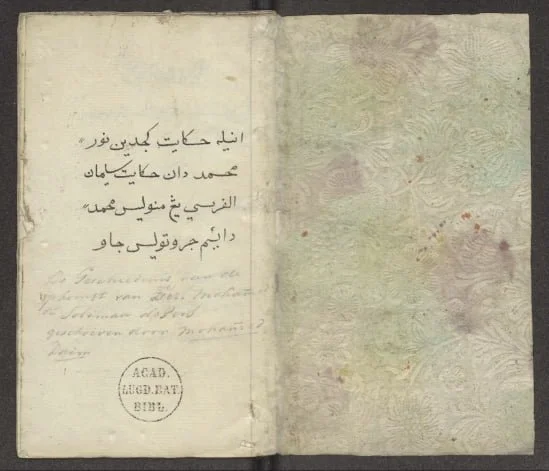 انيله حكايت كجدين نور٢
محمد دان حكايت سليمان
الفرسي يڠ منوليس محمد٢
دايم جروتوليس جاو
De Geschiedenis van de
opkomst van den Mohamed
en Soleman de Pers
geschreven door Mohamed
Daim
ACAD.
LUGD.BAT.
BIBL.